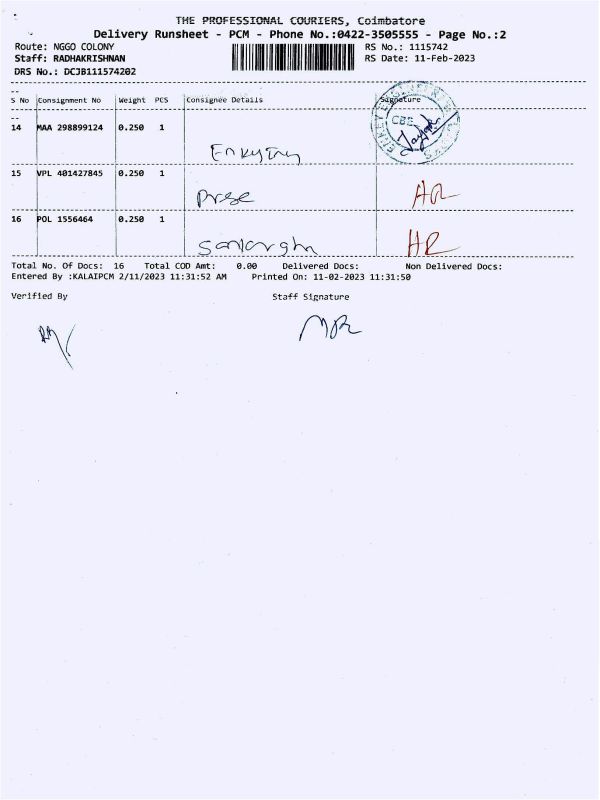 THE PROFESSIONAL COURIERS, Coimbatore
Delivery Runsheet - PCM - Phone No.:0422-3505555 - Page No.:2
Route: NGGO COLONY RS No.: 1115742
Staff: RADHAKRISHNAN RS Date: 11-Feb-2023
DRS No.: DCJB111574202
S No Consignment No Weight PCS Consignee Details Signature
CBE
14 MAA 298899124 0.250 1
15 VPL 401427845 0.250 1
16 POL 1556464 0.250 1
Total No. Of Docs: 16 Total COD Amt: 0.00 Delivered Docs: Non Delivered Docs:
Entered By :KALAIPCM 2/11/2023 11:31:52 AM Printed On: 11-02-2023 11:31:50
Verified By Staff Signature